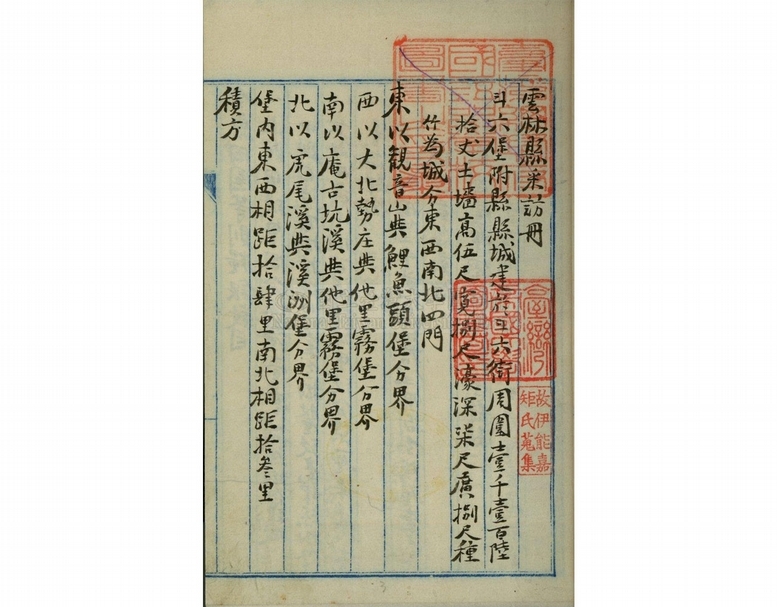 雲林縣采訪冊
斗六堡附縣縣城建於斗六街周圍壹千壹百陸
拾丈土墻高伍尺寬捌尺濠深柒尺廣捌尺種
竹為城分東西南北四門
東以觀音山與鯉魚頭堡分界
西以大北勢庄與他里霧堡分界
南以庵古坑溪與他里霧堡分界
北以虎尾溪與溪洲堡分界
堡內東西相距拾肆里南北相距拾叁里
積方
故伊能嘉
矩氏蒐集